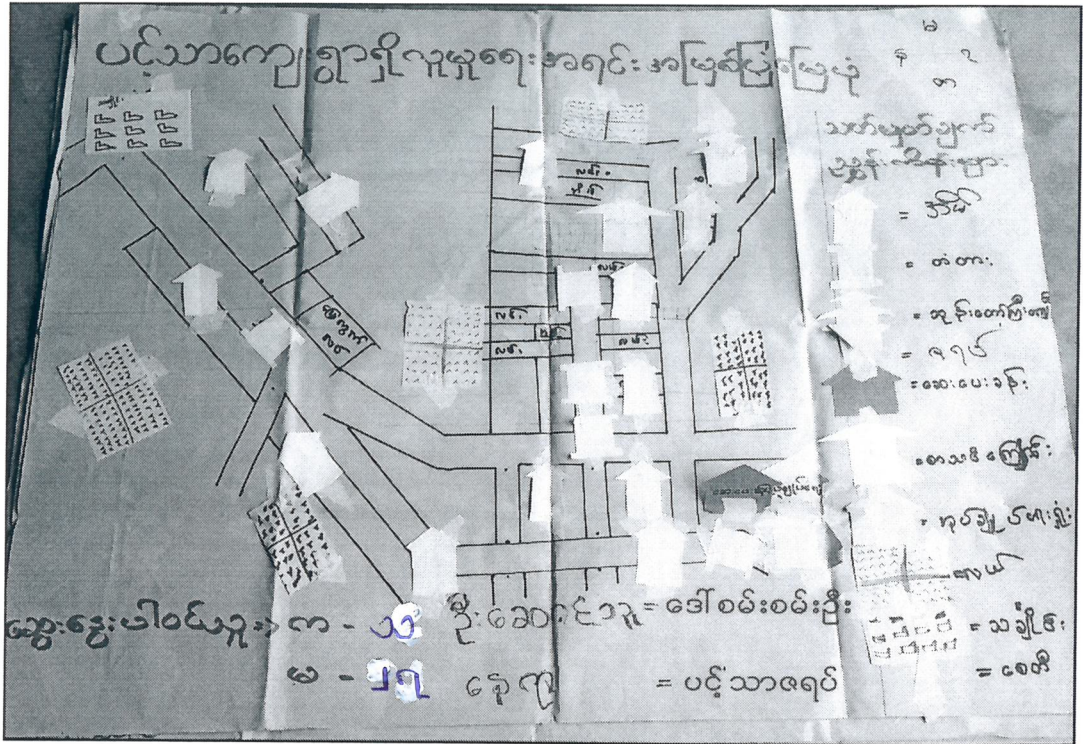 ပင့်သာကျေးရွာရှိလူမှုရေးအရင်းအမြစ်ပြမြေပုံ
သတ်မှတ်ချက်
ညွှန်းကိန်းများ
= အိမ်
= တံတား
= ဘုန်းတော်ကြီးကျောင်း
= ဇရပ်
= ဆေးပေးခန်း
= စာသင်ကျောင်း
= အုပ်ချုပ်ရေးရုံး
လယ်
= သင်္ချိုင်း
= စေတီ
လမ်း
လမ်း
လမ်း
လမ်း
လမ်း
ဆွေးနွေးပါဝင်သူ => က - ၁၆ ဦးဆောင်သူ = ဒေါ်စမ်းစမ်းဦး
မ - ၂၇ နေရာ = ပင့်သာဇရပ်